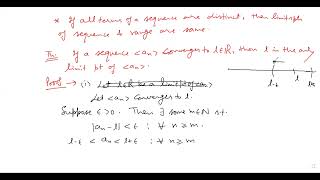 * If all terms of a sequence are distinct, then limit pts
of sequence & range are same.
Th: If a sequence <an> converges to l∈R, then l is the only
limit pt of <an>.
Proof → (i) Let l∈R be a limit pt of <an>
Let <an> converges to l.
l-ε l l+ε
Suppose ε>0. Then ∃ some m∈N s.t.
|an - l| < ε ; ∀ n ≥ m.
l-ε < an < l+ε ; ∀ n ≥ m